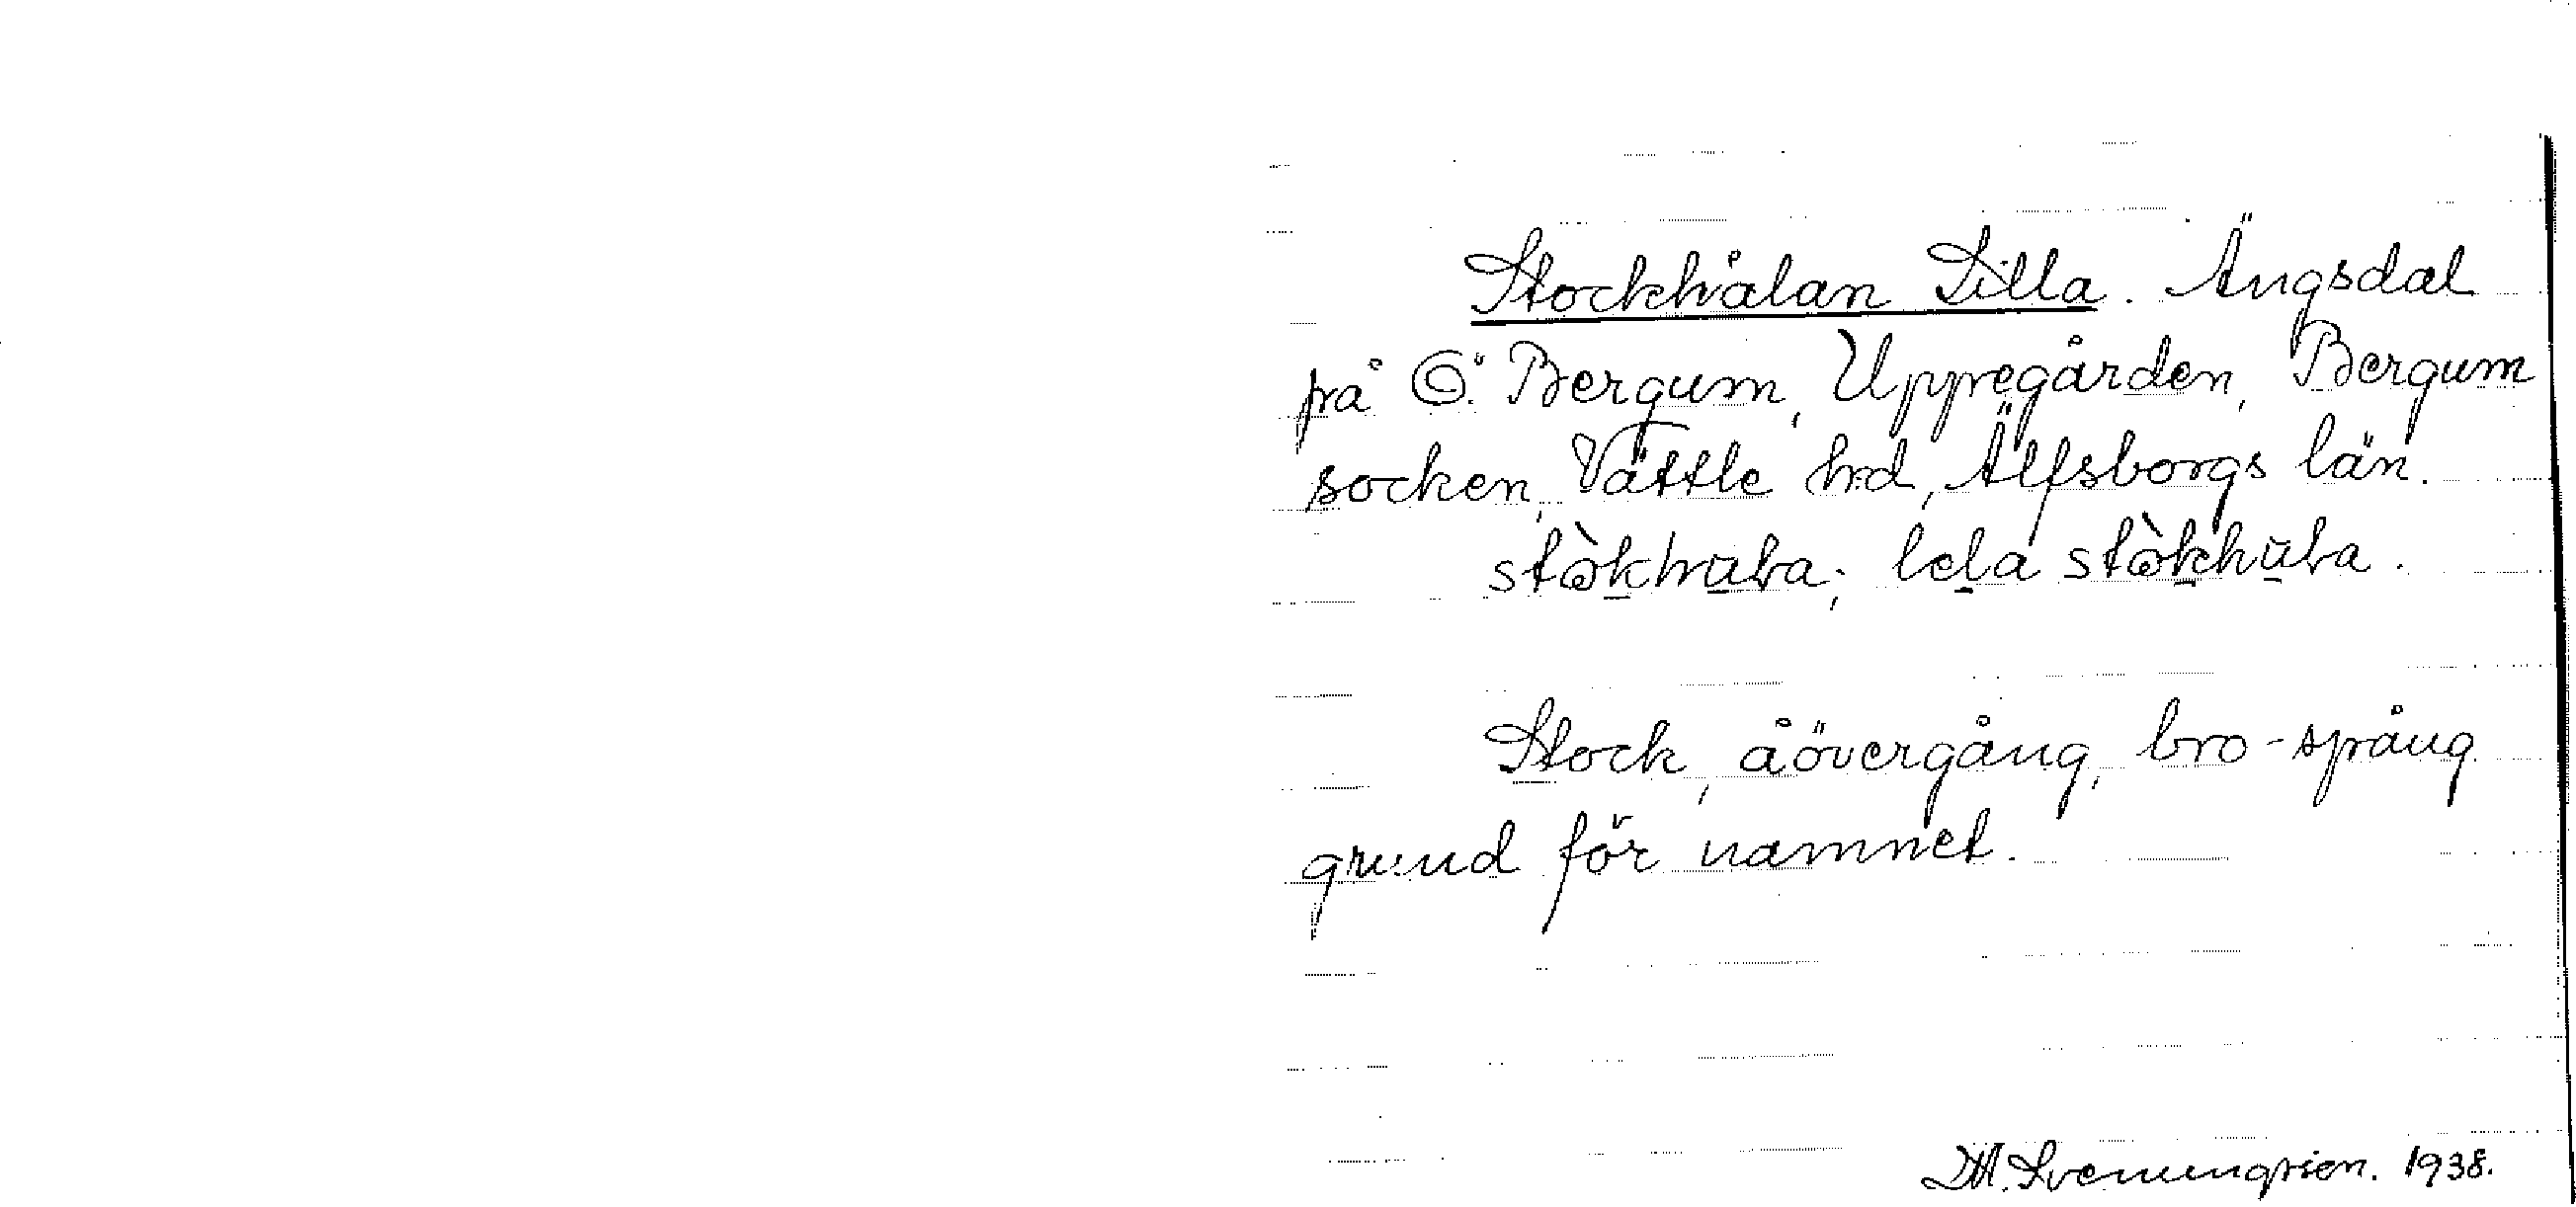 Stockhålan Lilla. Ängsdal
på Ö. Bergum, Uppegården, Bergum
socken, Vättle hd, Älfsborgs län.
lela
Stock, åövergång, bro-språng
grund för namnet.
1938.